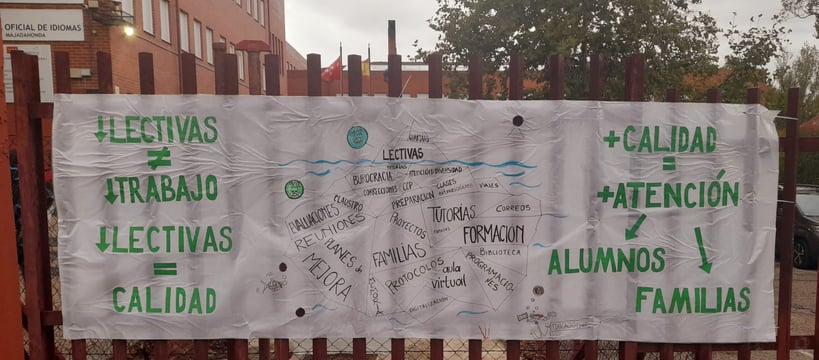 OFICIAL DE IDIOMAS
MAJADAHONDA
↓LECTIVAS
≠
↓TRABAJO
↓LECTIVAS
=
CALIDAD
LECTIVAS
TUTORÍAS
BUROCRACIA
ATENCIÓN DIVERSIDAD
CORRECCIONES
CCP
CLASES
EXTRAESCOLARES
VIAJES
CLAUSTRO
PREPARACIÓN
EVALUACIONES
REUNIONES
PLANES de
MEJORA
PROYECTOS
TUTORIAS
CORREOS
FORMACION
FAMILIAS
BIBLIOTECA
PROTOCOLOS
aula
virtual
PROGRAMACIO-
NES
DIGITALIZACIÓN
+CALIDAD
=
+ATENCIÓN
ALUMNOS
FAMILIAS